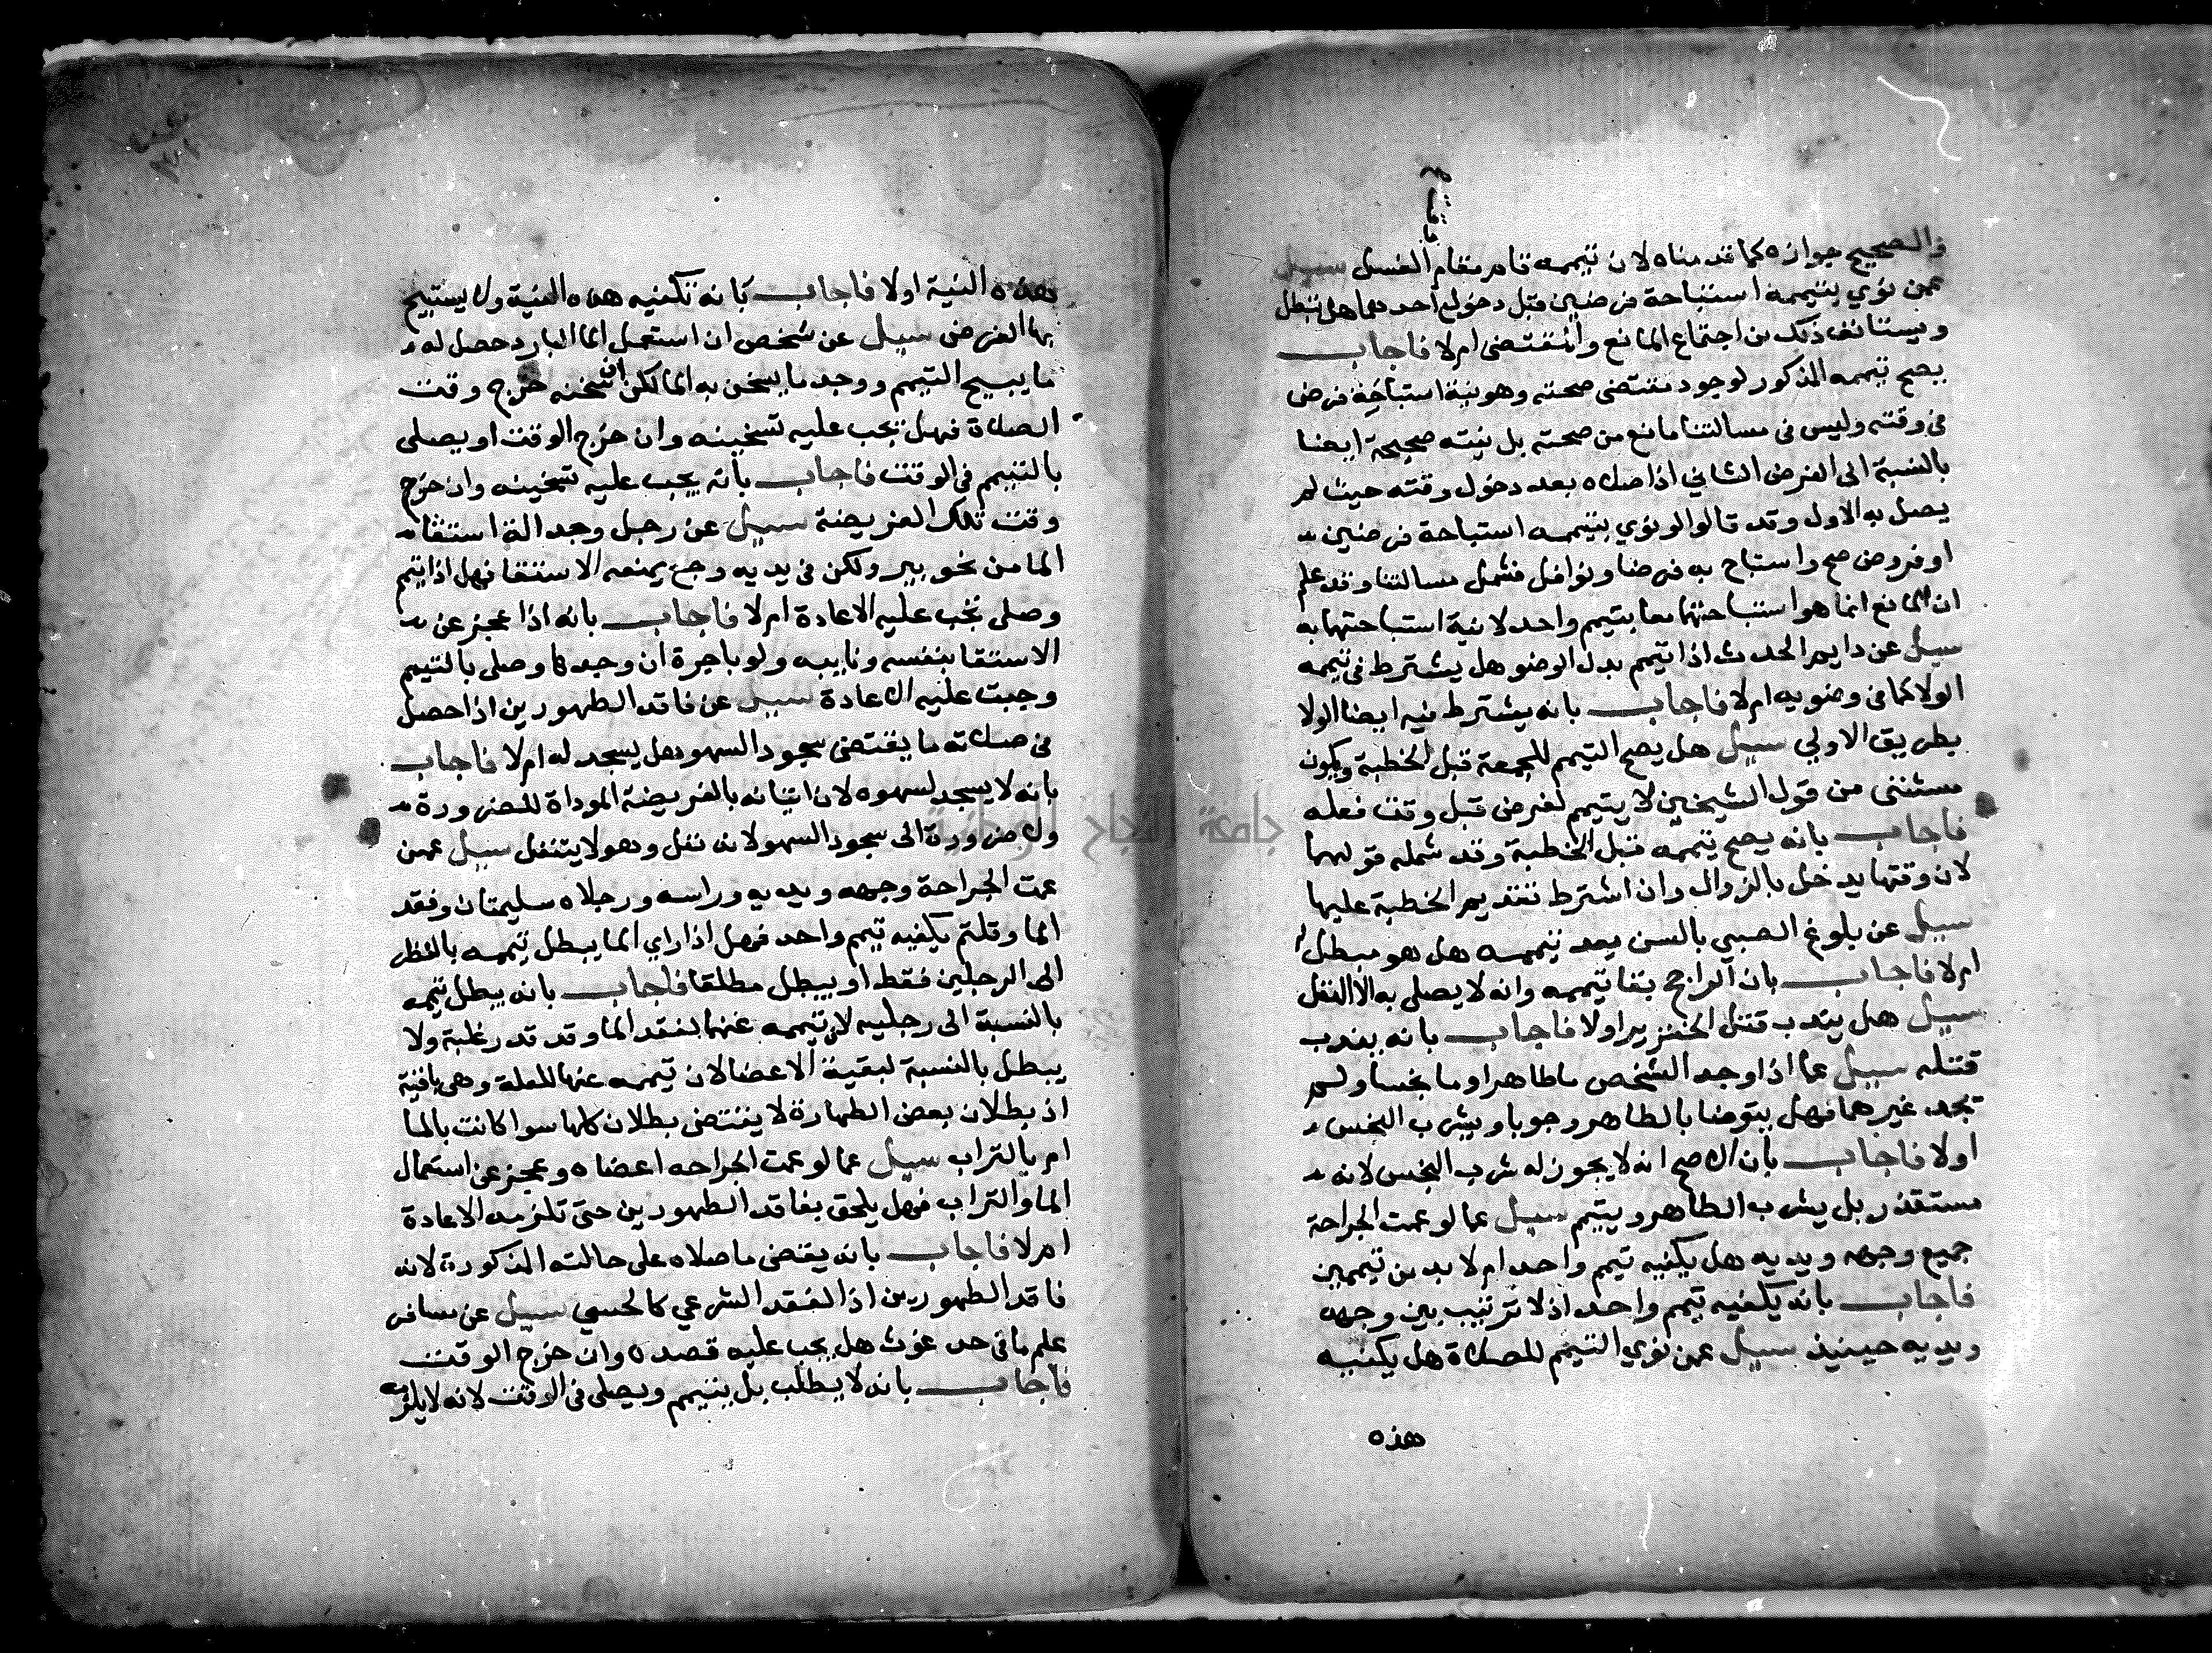 والصحيح جوازه كما قدمناه لان تيممه قام مقام الغسل سيل
عمن نوي بتيممه استباحة فرضين قبل دخول احدهما هل تبطل
ويستانف ذلك من اجتماع المانع والمقتضى ام لا فاجاب
يصح تيممه المذكور لوجود مقتضى صحته وهو نية استباحة فرض
في وقته وليس في مسالتنا مانع من صحته بل نيته صحيحة ايضا
بالنسبة الى الفرض الثاني اذا صلاه بعد دخول وقته حيث لم
يصل به الاول وقد قالوا لو نوي بتيممه استباحة فرضين
او فروض صح واستباح به فرضا ونوافل فشمل مسالتنا وقد علم
ان المانع انما هو استباحتهما معا بتيمم واحد لا نية استباحتهما به
سيل عن دايم الحدث اذا تيمم بدل الوضو هل يشترط في تيممه
الولا كما في وضويه ام لا فاجاب بانه يشترط فيه ايضا الولا
بطريق الاولي سيل هل يصح التيمم للجمعة قبل الخطبة ويكون
مستثنى من قول الشيخين لا يتيمم لفرض قبل وقت فعله
فاجاب بانه يصح تيممه قبل الخطبة وقد شمله قولهما
لان وقتها يدخل بالزوال وان اشترط تقديم الخطبة عليها
سيل عن بلوغ الصبي بالسن بعد تيممه هل هو مبطل
ام لا فاجاب بان الراجح بقا تيممه وانه لا يصلي به الا النفل
سيل هل يندب قتل الخنزير او لا فاجاب بانه يندب
قتله سيل عما اذا وجد الشخص ماطاهرا وما نجسا ولم
تجد غيرهما فهل يتوضا بالطاهر وجوبا ويشرب النجس
او لا فاجاب بان الاصح انه لا يجوز له شرب النجس لانه
مستقذر بل يشرب الطاهر ويتيمم سيل عما لو عمت الجراحة
جميع وجهه ويديه هل يكفيه تيمم واحد ام لا بد من تيممين
فاجاب بانه يكفيه تيمم واحد اذ لا ترتيب بين وجهه
ويديه حينيذ سيل عمن نوي التيمم للصلاة هل يكفيه
هذه
بهذه النية او لا فاجاب بانه تكفيه هذه النية ولا يستبيح
بها الفرض سيل عن شخص ان استعمل الما البارد حصل له
ما يبيح التيمم ووجد ما يسخن به الما لكن ان سخنه خرج وقت
الصلاة فهل تجب عليه تسخينه وان خرج الوقت او يصلى
بالتيمم في الوقت فاجاب بانه يجب عليه تسخينه وان خرج
وقت تلك الفريضة سيل عن رجل وجد الة استقا
الما من نحو بير ولكن في يديه وجع يمنعه الاستقا فهل اذا تيمم
وصلى تجب عليه الاعادة ام لا فاجاب بانه اذا عجز عن
الاستقا بنفسه ونايبه ولو باجرة ان وجدها وصلى بالتيمم
وجبت عليه الاعادة سيل عن فاقد الطهورين اذا حصل
في صلاته ما يقتضى سجود السهو هل يسجد له ام لا فاجاب
بانه لا يسجد لسهوه لان اتيانه بالفريضة المؤداة للضرورة
ولا ضرورة الى سجود السهو لانه نفل وهو لا يتنفل سيل عمن
عمت الجراحة وجهه ويديه وراسه ورجلاه سليمتان وفقد
الما وقلتم يكفيه تيمم واحد فهل اذا راي الما يبطل تيممه بالنظر
الى الرجلين فقط او يبطل مطلقا فاجاب بانه يبطل تيممه
بالنسبة الى رجليه لان تيممه عنهما لفقد الما وقد قدر عليه ولا
يبطل بالنسبة لبقية الاعضا لان تيممه عنها للعلة وهي باقية
اذ بطلان بعض الطهارة لا يقتضى بطلان كلها سوا كانت بالما
ام بالتراب سيل عما لو عمت الجراحه اعضاه وعجز عن استعمال
الما والتراب فهل يلحق بفاقد الطهورين حتى تلزمه الاعادة
ام لا فاجاب بانه يقضى ما صلاه على حالته المذكورة لانه
فاقد الطهورين اذ الفقد الشرعي كالحسي سيل عن مسافر
علم ما في حد غوث هل يجب عليه قصده وان خرج الوقت
فاجاب بانه لا يطلب بل يتيمم ويصلي في الوقت لانه لا يلزمه
جامعة النجاح الوطنية